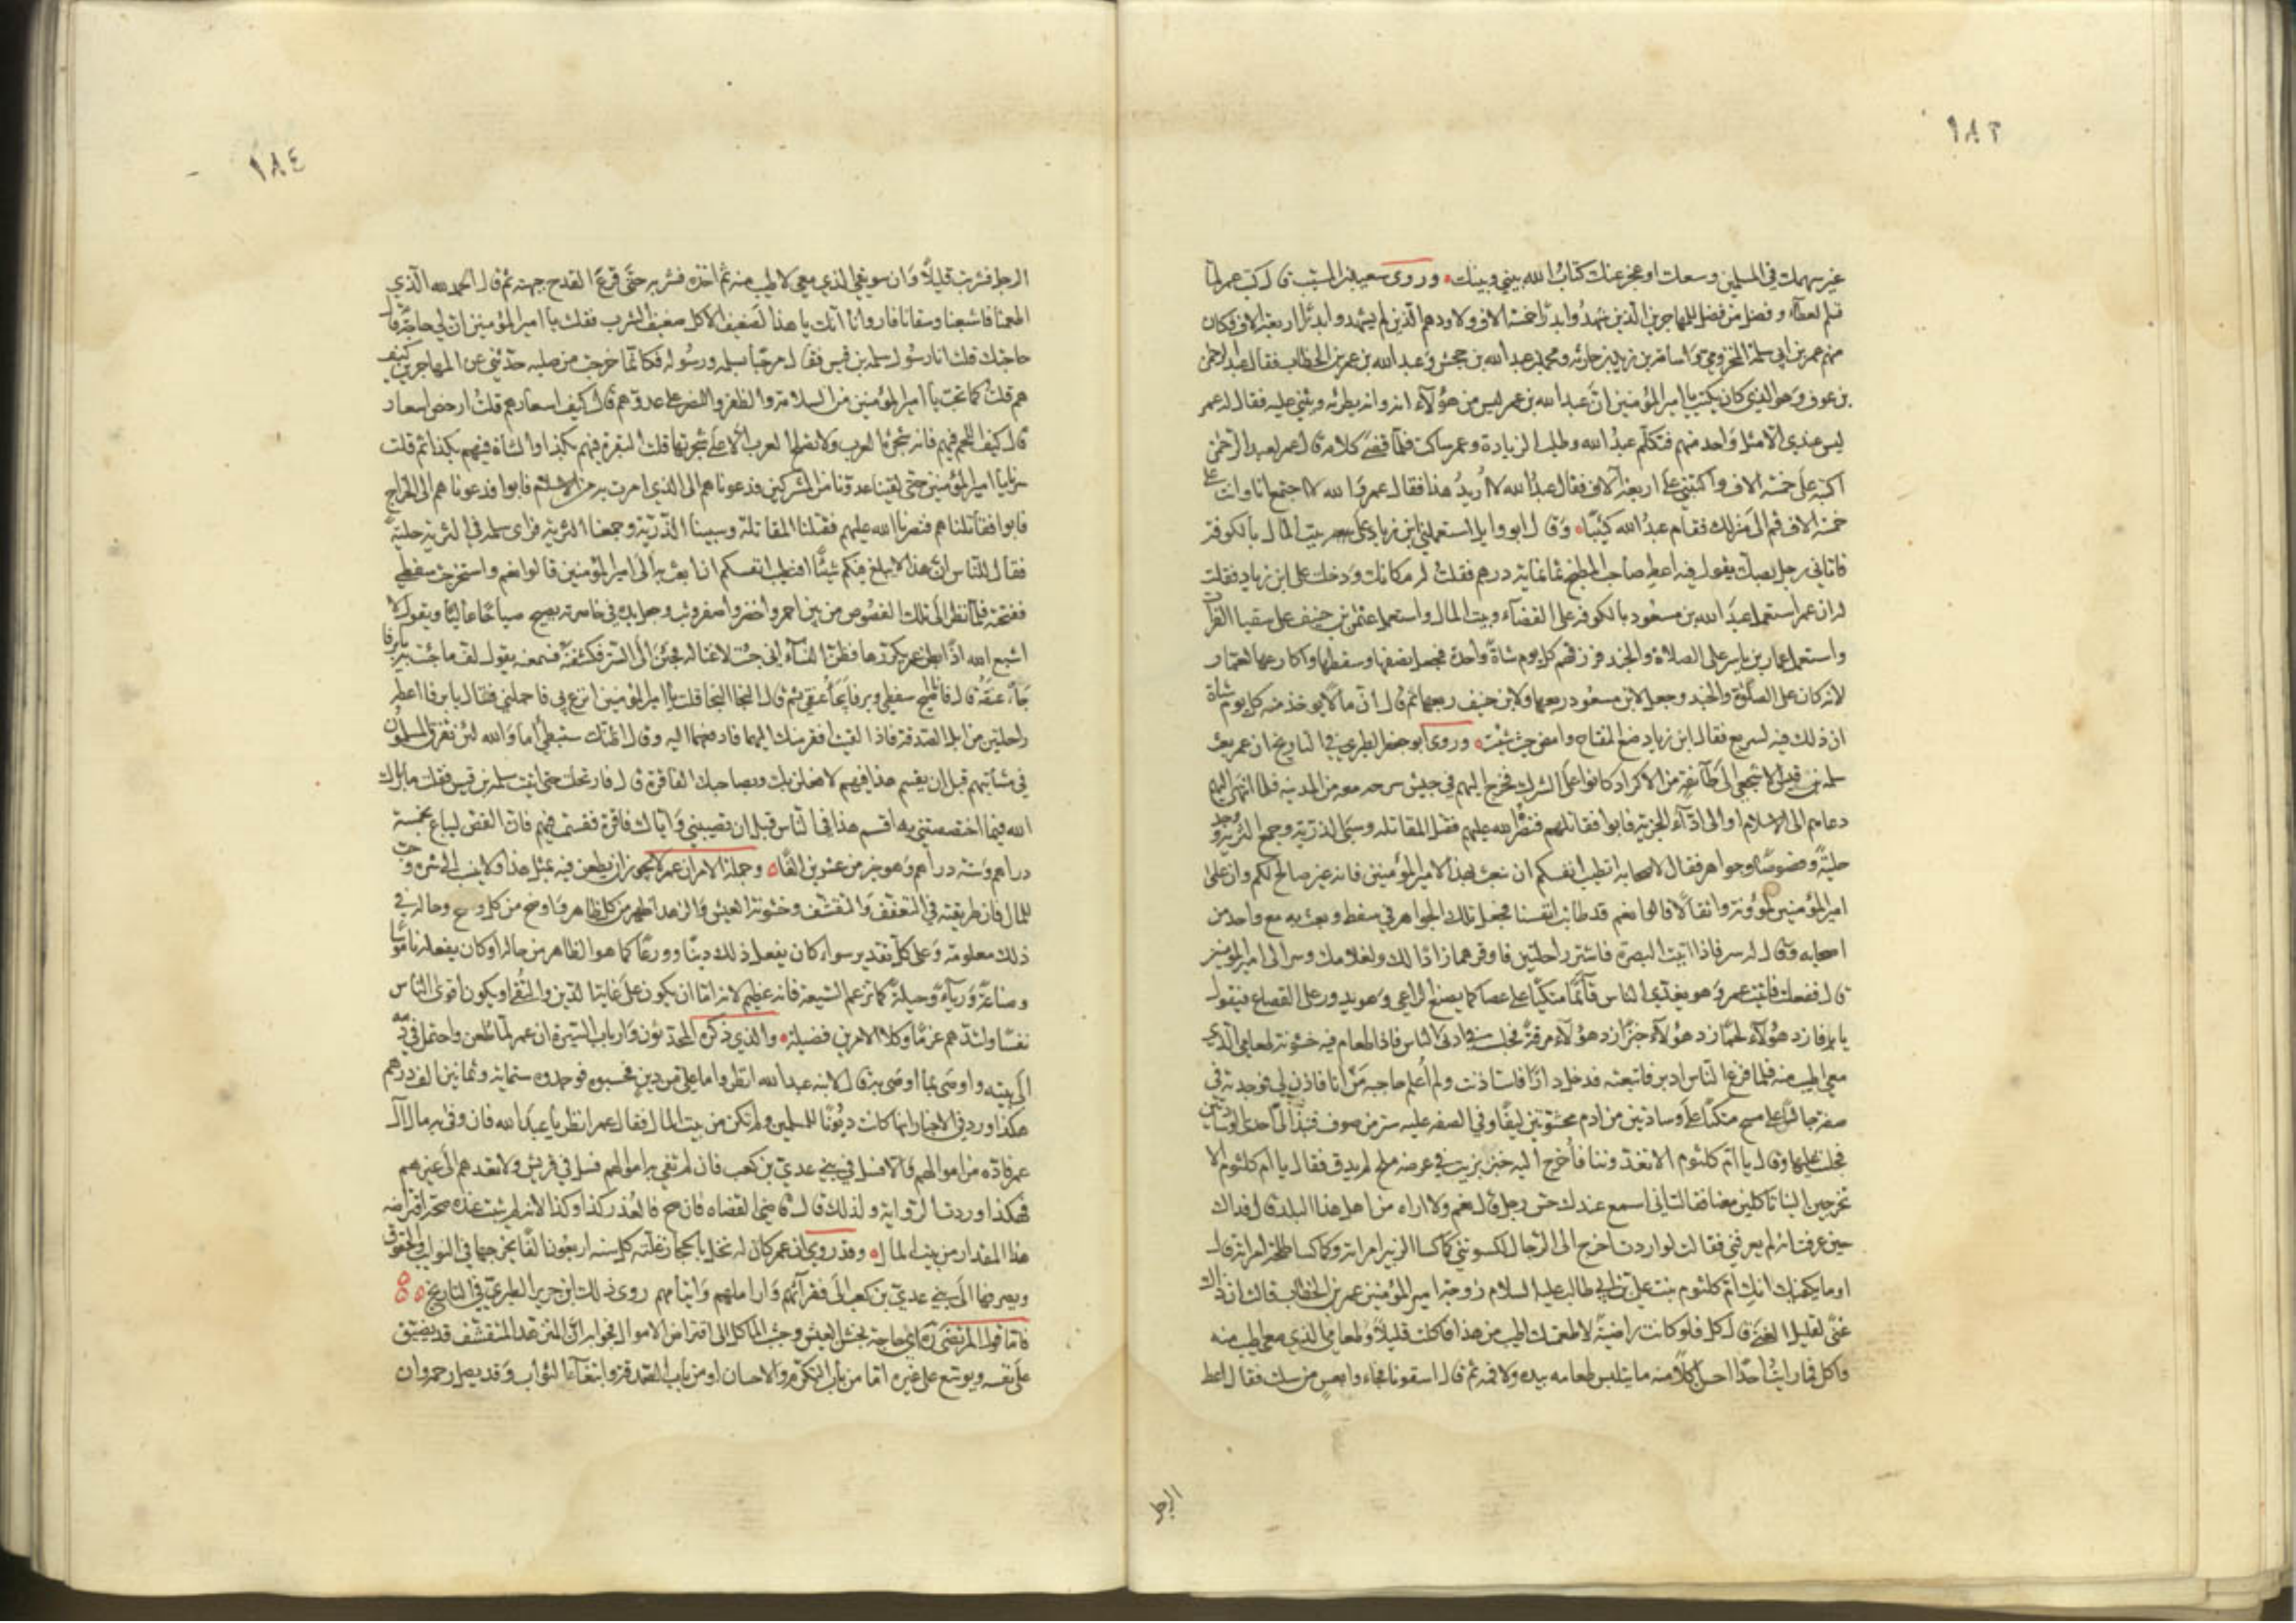 ١٨٣
غير سهمك في المسلمين وسعك او عجز عنك كتاب الله بيني وبينك وروى سعيد بن المسيب قال كتب عمر لما
قسم العطاء وفضل من فضل للمهاجرين الذين شهدوا بدرا خمسة الاف ولاولادهم الذين لم يشهدوا بدرا اربعة الاف فكان
منهم عمر بن ابي سلمة المخزومي واسامة بن زيد بن حارثة ومحمد بن عبد الله بن جحش وعبد الله بن عمر بن الخطاب فقال عبد الرحمن
بن عوف وهو الذي كان يكتب يا امير المؤمنين ان عبد الله بن عمر ليس من هؤلاء انه وانه يطريه ويثني عليه فقال له عمر
ليس عندي الا مثل واحد منهم فتكلم عبد الله وطلب الزيادة وعمر ساكت فلما قضى كلامه قال عمر لعبد الرحمن
اكتبه على خمسة الاف واكتبني على اربعة الاف فقال عبد الله لا اريد هذا فقال عمر والله لا اجتمع انا وانت على
خمسة الاف قم الى منزلك فقام عبد الله كئيبا وقال ابو وايل استعملني ابن زياد على بيت المال بالكوفة
فاتاني رجل بصك يقول فيه اعط صاحب المطبخ ثمانمائة درهم فقلت له مكانك ودخلت على ابن زياد فقلت
له ان عمر استعمل عبد الله بن مسعود بالكوفة على القضاء وبيت المال واستعمل عثمن بن حنيف على سقيا الفرات
واستعمل عمار بن ياسر على الصلاة والجند فرزقهم كل يوم شاة واحدة فجعل نصفها وسقطها واكارعها لعمار
لانه كان على الصلوة والجند وجعل لابن مسعود ربعها ولابن حنيف ربعها ثم قال ان مالا يؤخذ منه كل يوم شاة
ان ذلك فيه لسريع فقال ابن زياد ضع المفتاح وامض حيث شئت وروى ابو جعفر الطبري في التاريخ ان عمر بعث
سلمة بن قيس الاشجعي الى طائفة من الاكراد كانوا على الشرك فخرج اليهم في جيش سرحه معه من المدينة فلما انتهى اليهم
دعاهم الى الاسلام او الى اداء الجزية فابوا فقاتلهم فنصره الله عليهم فقتل المقاتلة وسبى الذرية وجمع الرثة ووجد
حلية وفصوصا وجواهر فقال لاصحابه اتطيب انفسكم ان نبعث بهذا الى امير المؤمنين فانه غير صالح لكم وان على
امير المؤمنين لمؤونة واثقالا قالوا نعم قد طابت انفسنا فجعل تلك الجواهر في سفط وبعث به مع واحد من
اصحابه وقال له سر فاذا اتيت البصرة فاشتر راحلتين فاوقرهما زادا لك ولغلامك وسر الى امير المؤمنين
قال ففعلت فاتيت عمر وهو يغدي الناس قائما متكيا على عصا كما يصنع الراعي وهو يدور على القصاع فيقول
يا يرفا زد هؤلاء لحما زد هؤلاء خبزا زد هؤلاء مرقة فجلست في ادنى الناس فاذا طعام فيه خشونة طعامي الذي
معي اطيب منه فلما فرغ الناس ادبر فاتبعته فدخل دارا فاستاذنت ولم اعلم حاجبه من انا فاذن لي فوجدته في
صفة جالسا على مسح متكيا على وسادتين من ادم محشوتين ليفا وفي الصفة عليه ستر من صوف فنبذ الي احدى الوسادتين
فجلست عليها وقال يا ام كلثوم الا تغدوننا فاخرج اليه خبز بزيت في عرضه ملح لم يدق فقال يا ام كلثوم الا
تخرجين الينا تاكلين معنا فقالت اني اسمع عندك حس رجل قال نعم ولا اراه من اهل هذا البلد قال فذاك
حين عرفت انه لم يعرفني فقالت لو اردت ان اخرج الى الرجال لكسوتني كما كسا الزبير امراته وكما كسا طلحة امراته قال
اوما يكفيك انك ام كلثوم بنت علي بن ابي طالب عليه السلام زوجة امير المؤمنين عمر بن الخطاب قالت ان ذاك
عني لقليل الغنى قال كل فلو كانت راضية لاطعمتك اطيب من هذا فاكلت قليلا وطعامي الذي معي اطيب منه
واكل فما رايت احدا احسن اكلا منه ما يتلبس طعامه بيده ولا فمه ثم قال اسقونا فجاءوا بعس من سلت فقال اعط
الرجل
١٨٤
الرجل فشربت قليلا وان سويقي الذي معي لاطيب منه ثم اخذه فشربه حتى قرع القدح جبهته ثم قال الحمد لله الذي
اطعمنا فاشبعنا وسقانا فاروانا انك يا هذا لضعيف الاكل ضعيف الشرب فقلت يا امير المؤمنين ان لي حاجة قال
حاجتك قلت انا رسول سلمة بن قيس فقال مرحبا بسلمة ورسوله فكانما خرجت من صلبه حدثني عن المهاجرين كيف
هم قلت كما تحب يا امير المؤمنين من السلامة والظفر والنصر على عدوهم قال كيف اسعارهم قلت ارخص اسعار
قال كيف اللحم فيهم فانه شجرة العرب ولا تصلح العرب الا على شجرتها قلت البقرة فيهم بكذا والشاة فيهم بكذا ثم قلت
سرنا يا امير المؤمنين حتى لقينا عدونا من المشركين فدعوناهم الى الذي امرت به من الاسلام فابوا فدعوناهم الى الخراج
فابوا فقاتلناهم فنصرنا الله عليهم فقتلنا المقاتلة وسبينا الذرية وجمعنا الرثة فراى سلمة في الرثة حلية
فقال للناس ان هذا لا يبلغ فيكم شيئا افتطيب انفسكم ان ابعث به الى امير المؤمنين قالوا نعم واستخرجت سفطي
ففتحته فلما نظر الى تلك الفصوص من بين احمر واخضر واصفر وثب وجعل يده في خاصرته يصيح صياحا عاليا ويقول لا
اشبع الله اذا بطن عمر يكررها فظن النساء اني جئت لاغتاله فجئن الى الستر فكشفنه فسمعنه يقول لف ما جئت به يا يرفا
جأ عنقه قال فانا اصلح سفطي ويرفا يجأ عنقي ثم قال النجا النجا قلت يا امير المؤمنين انزع بي فاحملني فقال يا يرفا اعطه
راحلتين من ابل الصدقة فاذا لقيت افقر منك اليهما فادفعهما اليه وقال اظنك ستبطي اما والله لئن تفرق المسلمون
في مشاتيهم قبل ان يقسم هذا فيهم لافعلن بك وبصاحبك الفاقرة قال فارتحلت حتى اتيت سلمة بن قيس فقلت ما بارك
الله فيما اختصصتني به اقسم هذا في الناس قبل ان تصيبني واياك فاقرة فقسمه فيهم فان الفص ليباع بخمسة
دراهم وستة دراهم وهو خير من عشرين الفا وجملة الامر ان عمر لا يجوز ان يطعن فيه بمثل هذا ولا ينسب الى شره وحب
للمال فان طريقته في التعفف والتقشف وخشونة العيش والزهد اظهر من كل ظاهر واوضح من كل واضح وحاله في
ذلك معلومة وعلى كل تقدير سواء كان يفعل ذلك دينا وورعا كما هو الظاهر من حاله او كان يفعله ناموسا
وصناعة ورياء وحيلة كما تزعم الشيعة فانه عظيم لانه اما ان يكون على غاية الدين والتقى او يكون اقوى الناس
نفسا واشدهم عزما وكلا الامرين فضيلة والذي ذكره المحدثون وارباب السيرة ان عمر لما طعن واحتمل في دمه
الى بيته واوصى بما اوصى به قال لابنه عبد الله انظروا ما علي من دين فحسبوه فوجدوه ستمائة وثمانين الف درهم
هكذا ورد في الاخبار انها كانت ديونا للمسلمين ولم تكن من بيت المال فقال عمر انظر يا عبد الله فان وفى به مال آل
عمر فاده من اموالهم والا فسل في بني عدي بن كعب فان لم تفي به اموالهم فسل في قريش ولا تعدهم الى غيرهم
فهكذا وردت الرواية ولذلك قال قاضي القضاه فان صح فالعذر كذا وكذا لانه لم يثبت عنده صحة اقتراضه
هذا المقدار من بيت المال وقد روي ان عمر كان له نخل بالحجاز غلته كل سنة اربعون الفا يخرجها في النوايب والحقوق
ويصرفها الى بني عدي بن كعب الى فقرائهم واراملهم وايتامهم روى ذلك ابن جرير الطبري في التاريخ
فاما قول المرتضى ره اي حاجة بخشن العيش وجشب الماكل الى اقتراض الاموال فجوابه ان المتزهد المتقشف قد يضيق
على نفسه ويوسع على غيره اما من باب التكرم والاحسان او من باب الصدقة وابتغاء الثواب وقد يصل رحمه وان